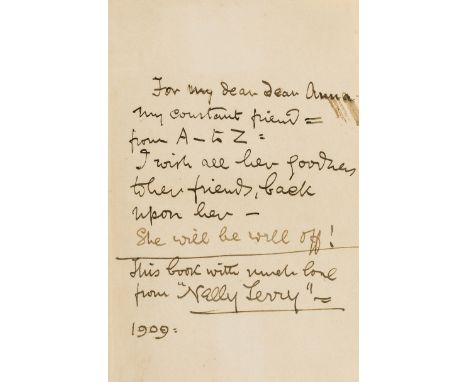 For my dear dear Anna
my constant friend =
from A - to Z =
I wish all her goodness
to her friends, back
upon her -
She will be well off!
This book with much love
from "Nelly Terry" =
1909 =